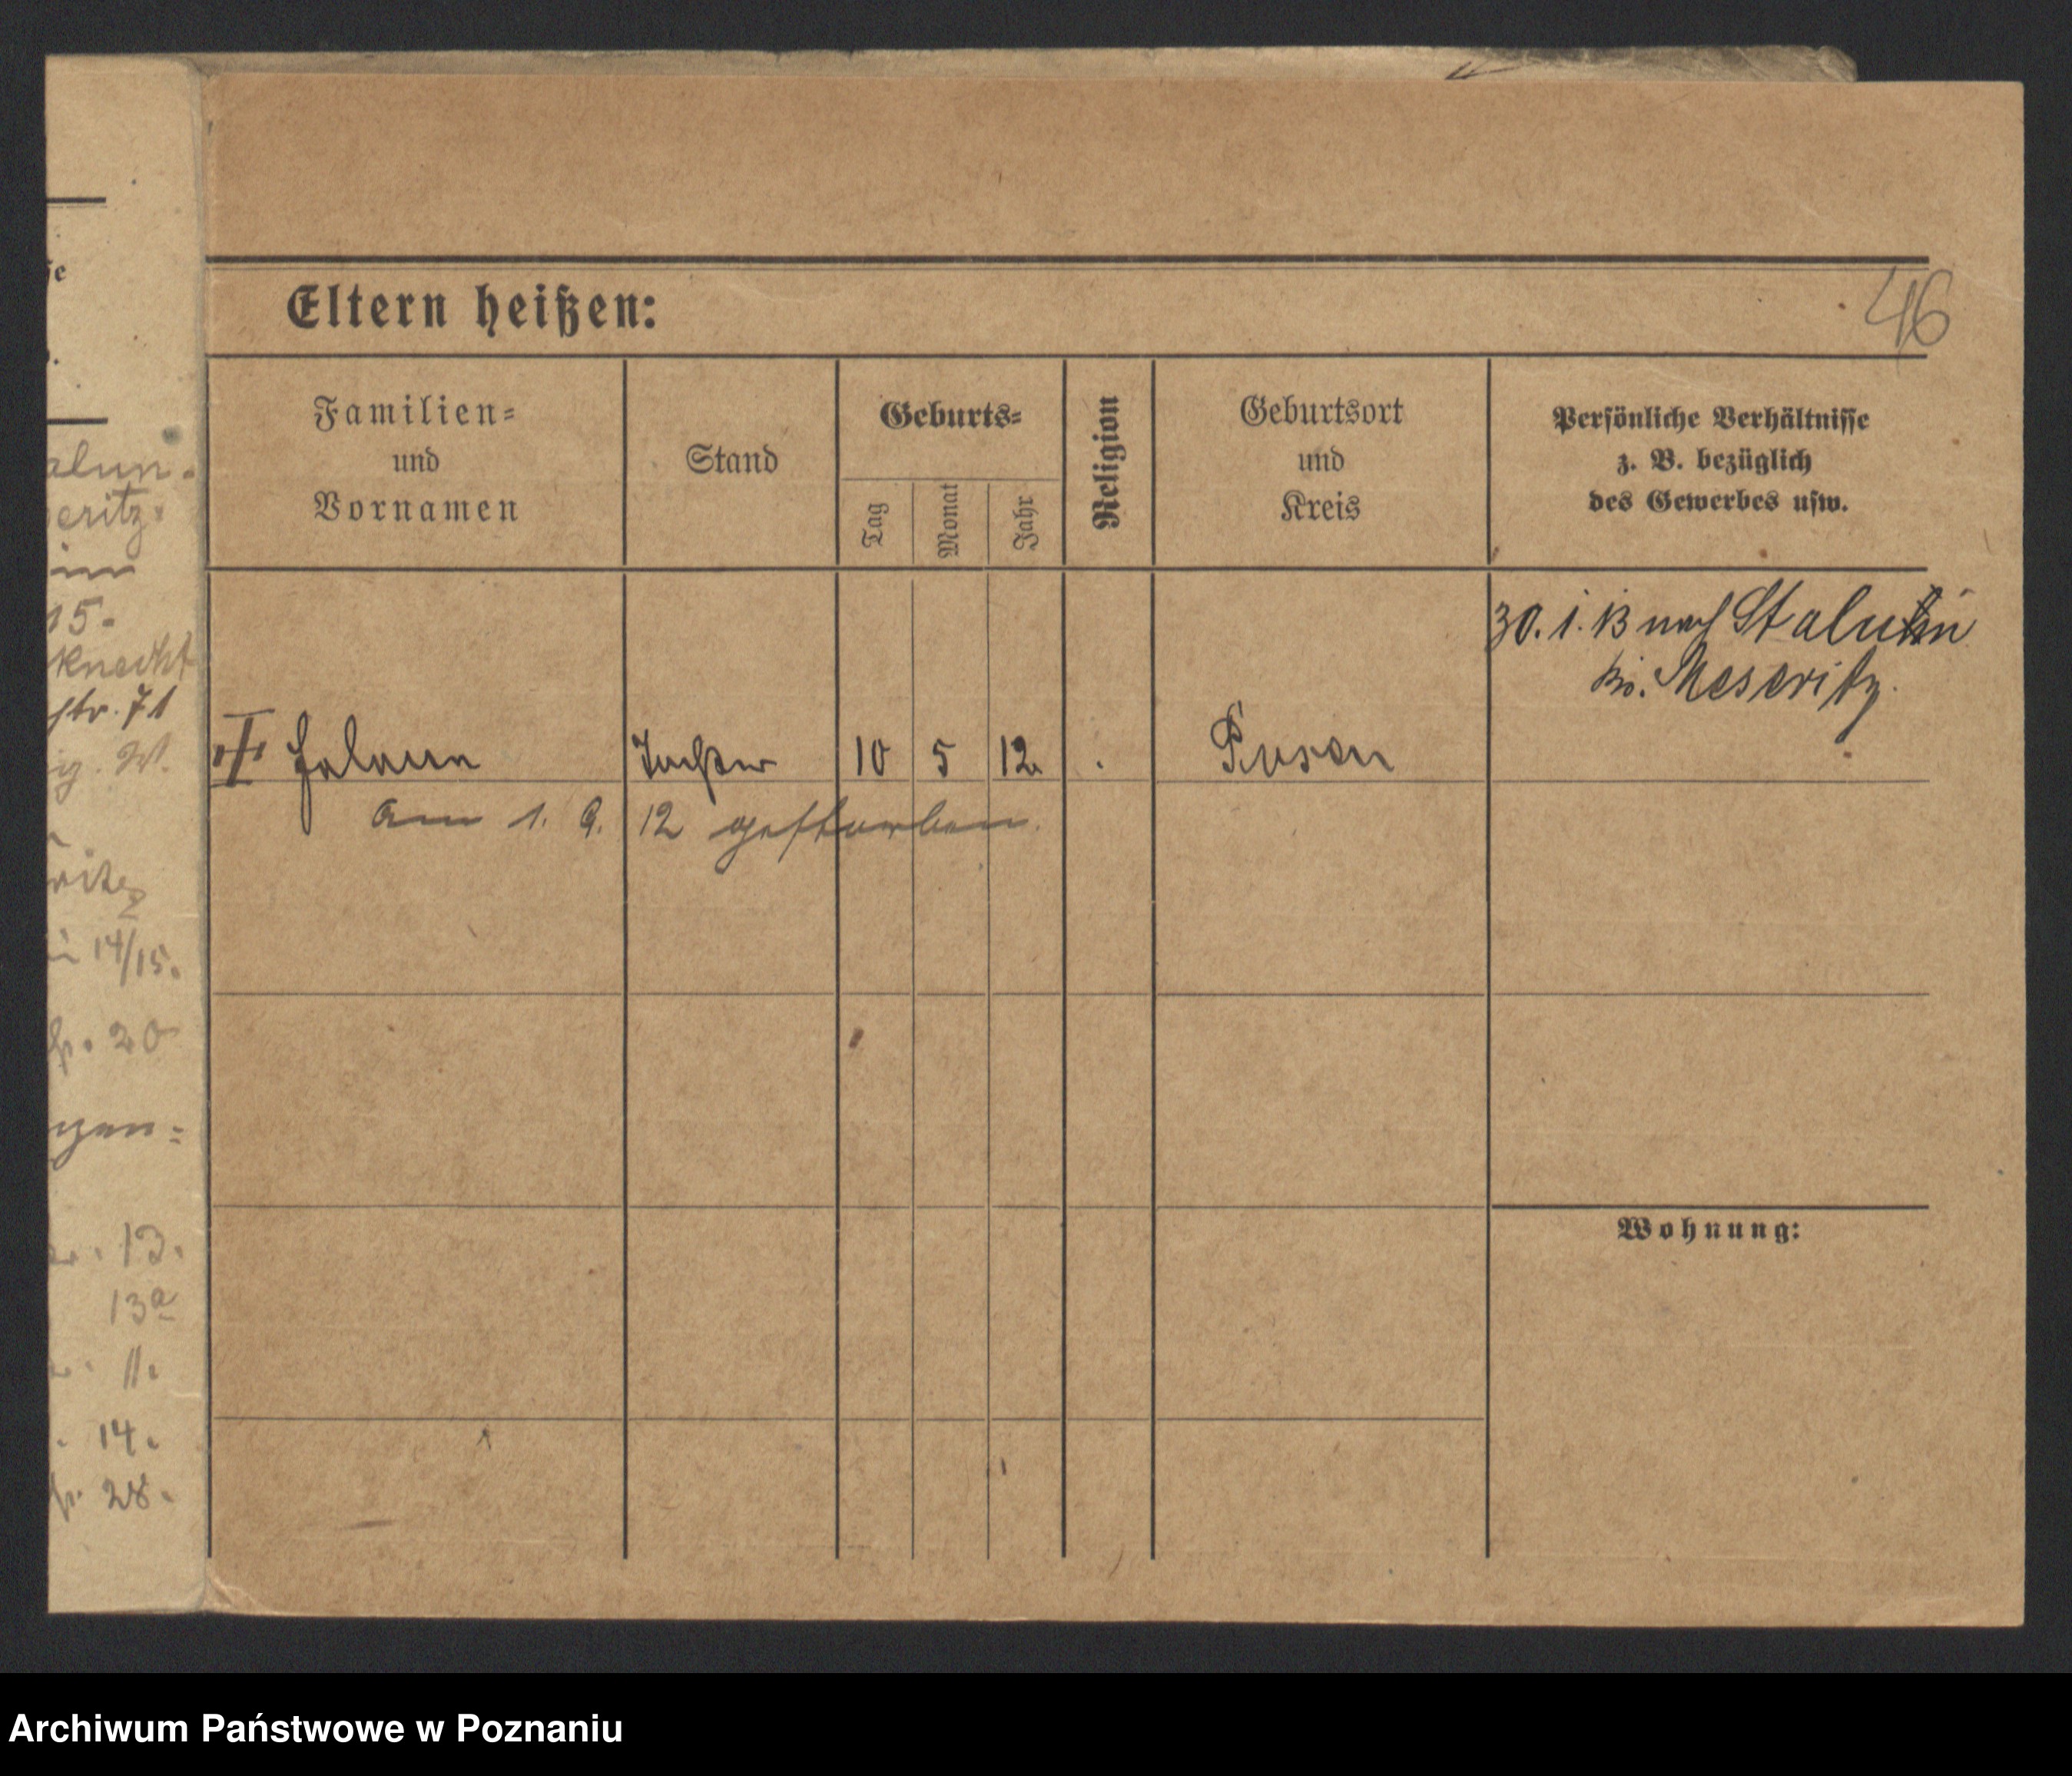 Eltern heißen:
46
Familien-
und
Vornamen
Stand
Geburts-
Tag
Monat
Jahr
Religion
Geburtsort
und
Kreis
Persönliche Verhältnisse
z. B. bezüglich
des Gewerbes usw.
30. 1. 13 nach
Kr. Meseritz.
Tochter 10 5 12 Posen
am 1. 9. 12 gestorben.
Wohnung:
eritz.
15.
knecht
str. 71
14/15.
20
13.
13a
11.
14.
28.
Archiwum Państwowe w Poznaniu